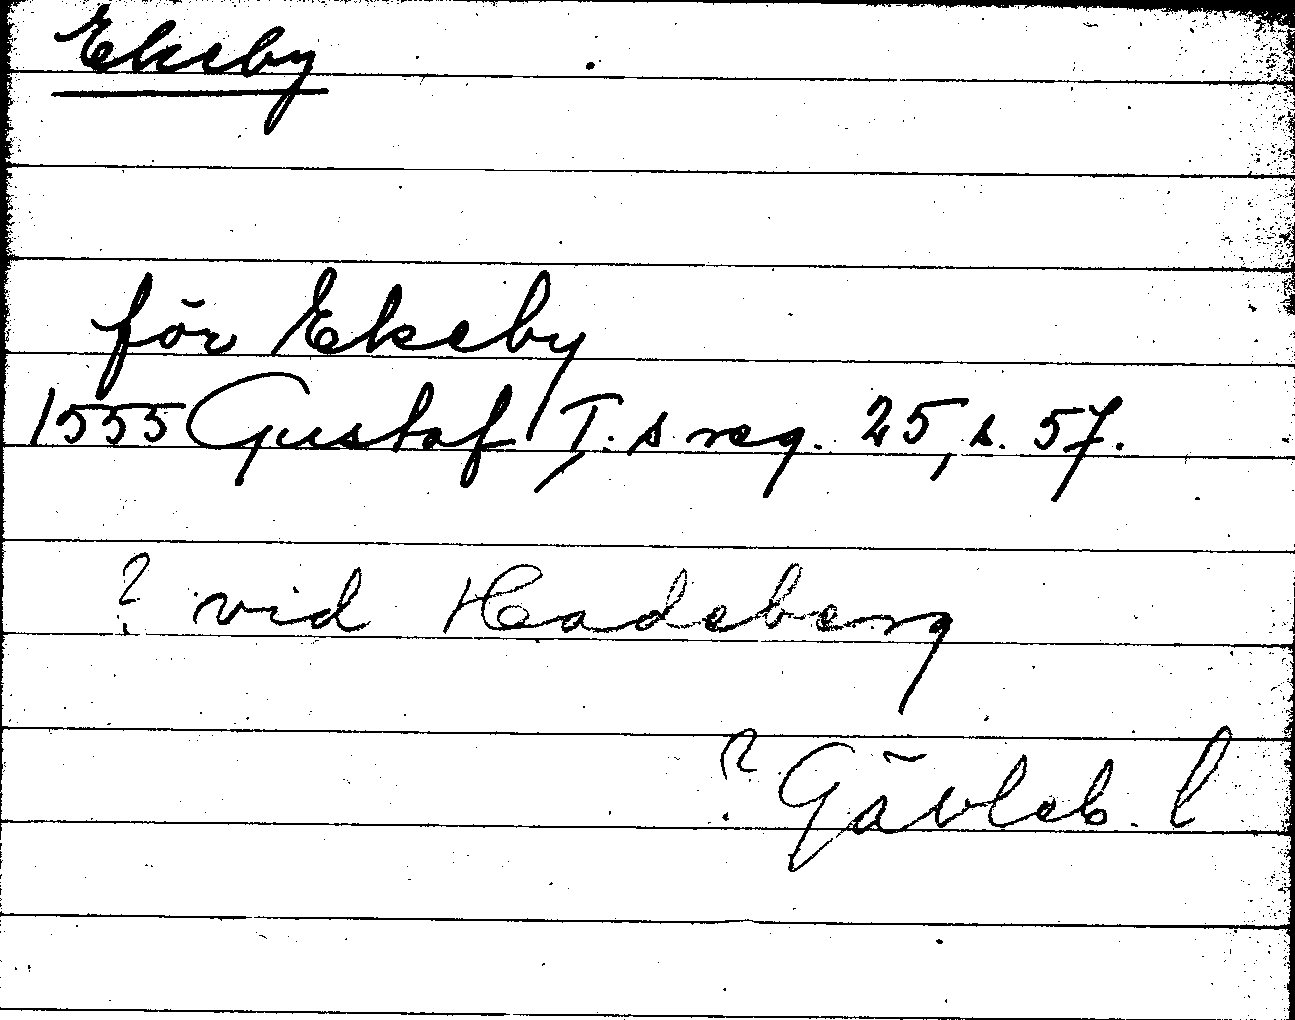 Ekeby
för Ekeby
1555 Gustaf I:s reg. 25, s. 57.
? vid Hadeberg
? Gävleb. l